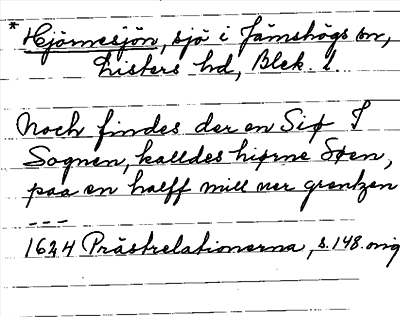 * Hjörnesjön, sjö i Jämshögs sn,
Listers hd, Blek. l.
Noch findes der en Siø I
Sognen, kalldes hiørne Søen,
paa en halff mill ner grentzen
---
1624 Prästrelationerna, s. 148. orig